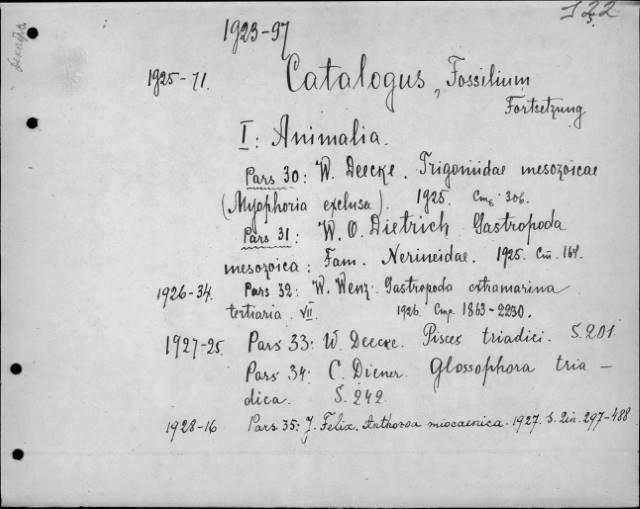 1923-97
1925-71. Catalogus Fossilium
Fortsetzung
I: Animalia.
Pars 30: W. Deecke. Trigoniidae mesozoicae
(Myophoria exclusa). 1925. Стр. 306.
Pars 31: W. O. Dietrich Gastropoda
mesozoica: Fam. Nerineidae. 1925. Ст. 164.
1926-34. Pars 32: W. Wenz. Gastropoda extramarina
tertiaria. VII. 1926. Стр. 1863-2230.
1927-25. Pars 33: W. Deecke. Pisces triadici. S. 201.
Pars 34: C. Diener. Glossophora tria-
dica. S. 242.
1928-16 Pars 35: J. Felix. Anthozoa miocaenica. 1927. S. 297-488